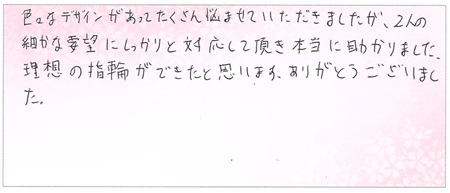 色々なデザインがあってたくさん悩ませていただきましたが、2人の
細かな要望にしっかりと対応して頂き本当に助かりました。
理想の指輪ができたと思います。ありがとうございまし
た。